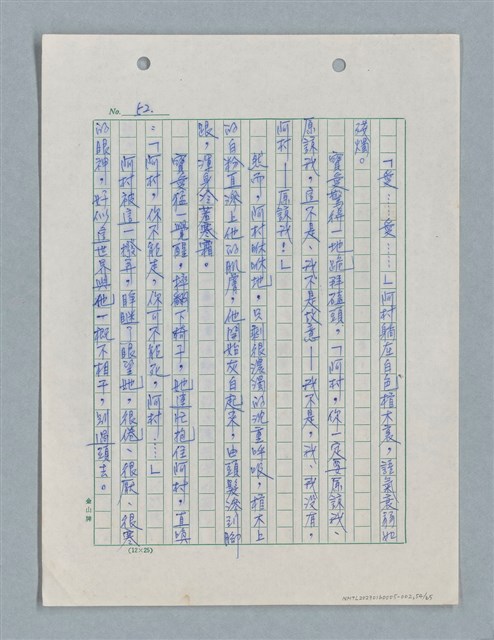 No. 52.
「愛……愛……」阿村躺在白色棺木裏，語氣衰弱如
殘燭。
寶愛驚得一地跪拜磕頭，「阿村，你一定要原諒我、
原諒我，這不是、我不是故意——我不是，我、我沒有，
阿村——原諒我！」
然而，阿村默默地，只剩很濃濁的沈重呼吸，棺木上
的白粉直滲上他的肌膚，他開始灰白起來，由頭髮滲到腳
跟，渾身冷若寒霜。
寶愛猛一驚醒，摔翻下椅子，她連忙抱住阿村，直嚷
：「阿村，你不能走，你可不能死，阿村……」
阿村被這一撥弄，睜瞇了眼望她，很倦、很厭、很寒
的眼神，好似這世界與他一概不相干，別過頭去。
金山牌
(12×25)